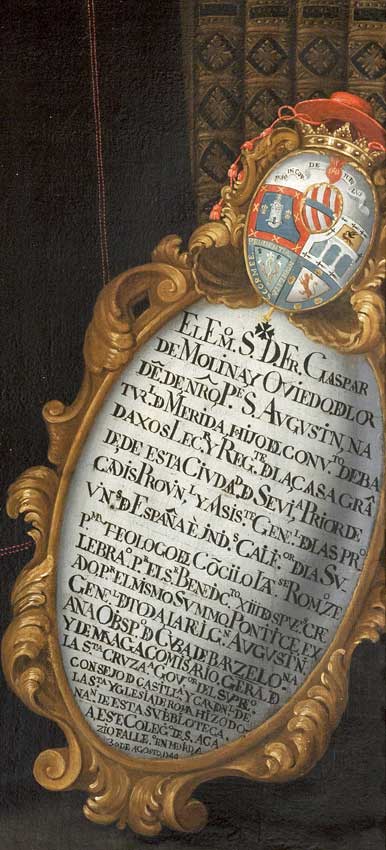 EL Eº.M. S. D. FR. GASPAR
DE MOLINA Y OVIEDO, DEL OR
DĒ. DE NRŌ. Pe S. AVGVSTIN, NA
TVR.L D MERIDA, HIJO D. CONV.TO DE BA
DAXOS LEC.R Y REG.TE D LA CASA GRĀ
DE, DE ESTA CIVDAD D. SEVI.LA PRIOR DE
CADIS PROVN.L Y ASIS.TE GENE.L D LAS PRO
VN.S D ESPAÑA È JND.S CALIF.OR D LA SV
P.MA TEOLOGO D CŌCILIO
LEBRA.O P.R EL S.R BENED.CTO XIII D SPVE.S CRE
ADO P.R EL MISMO SVMMO PONTIFCE, EX
GENE.L D TODA LA RELIG.N AVGVSTIN
ANA OBSP.O D CVBA DE BARZELO.NA
Y DE MALAGA COMISARIO GERA.L D
LA S.TA CRVZA.A GOV.OR DEL SVPRE.O
CONSEJO D CASTILLA Y CARDN.L DE
LA S.TA YGLESIA DE ROMA HIZO DO
NA.N DE ESTA SVBBLIOTECA
A ESTE COLEG.O DE S. ACA
ZIO FALLE.O EN MERIDA
30 DE AGOSTO, 1744